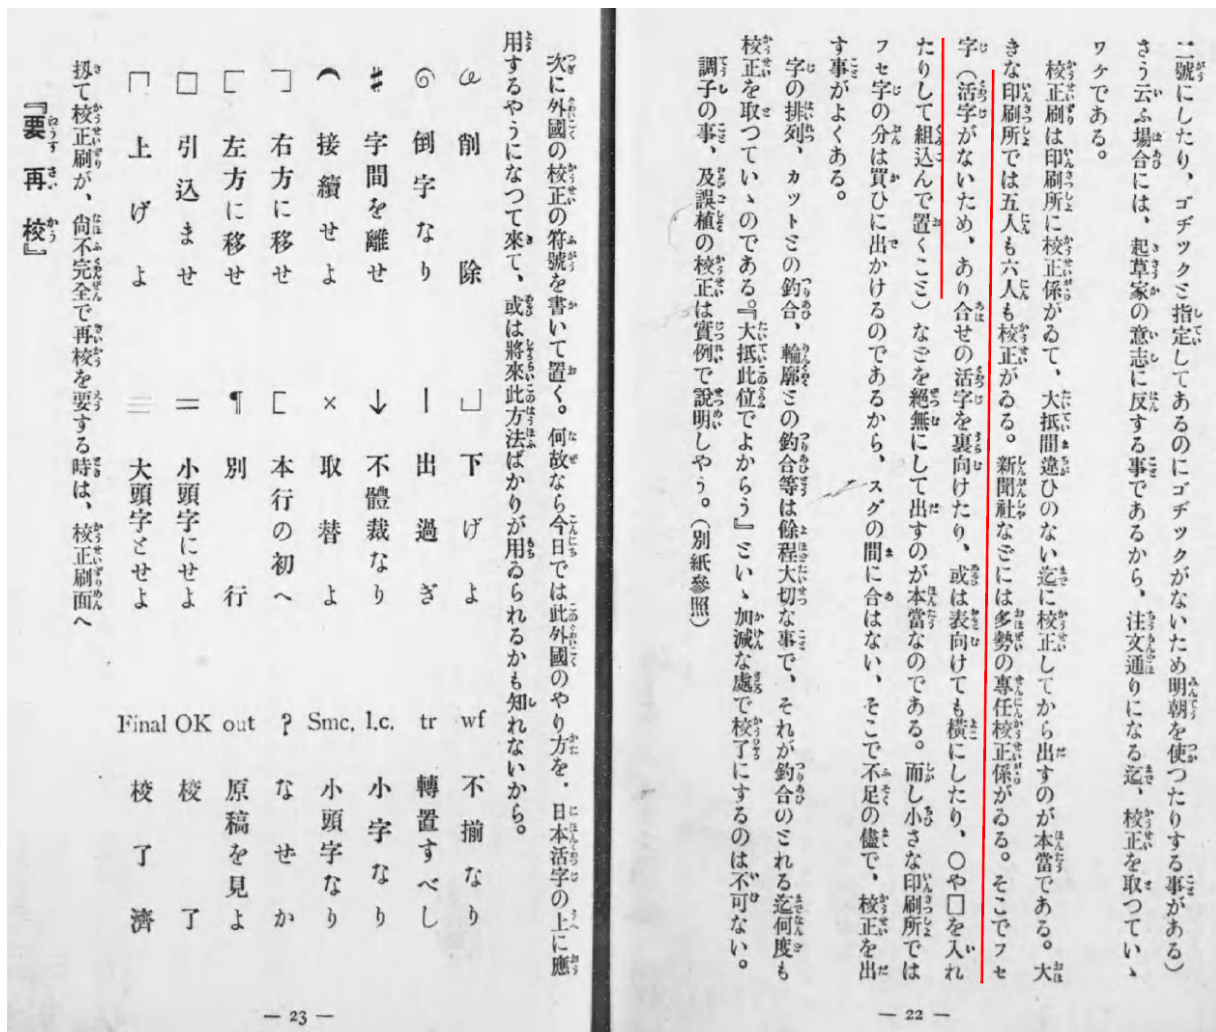 二號にしたり、ゴヂックと指定してあるのにゴヂックがないため明朝を使つたりする事がある)
さう云ふ場合には、起草家の意志に反する事であるから、注文通りになる迄、校正を取つていゝ
ワケである。
校正刷は印刷所に校正係がゐて、大抵間違ひのない迄に校正してから出すのが本當である。大
きな印刷所では五人も六人も校正がゐる。新聞社などには多勢の專任校正係がゐる。そこでフセ
字(活字がないため、あり合せの活字を裏向けたり、或は表向けても橫にしたり、〇や□を入れ
たりして組込んで置くこと)などを絕無にして出すのが本當なのである。而し小さな印刷所では
フセ字の分は買ひに出かけるのであるから、スグの間に合はない、そこで不足の儘で、校正を出
す事がよくある。
字の排列、カットとの釣合、輪廓との釣合等は餘程大切な事で、それが釣合のとれる迄何度も
校正を取つていゝのである。『大抵此位でよからう』といゝ加減な處で校了にするのは不可ない。
調子の事、及誤植の校正は實例で說明しやう。(別紙參照)
— 22 —
次に外國の校正の符號を書いて置く。何故なら今日では此外國のやり方を、日本活字の上に應
用するやうになつて來て、或は將來此方法ばかりが用ゐられるかも知れないから。
削除
⏌ 下げよ
wf 不揃なり
倒字なり
| 出過ぎ
tr 轉置すべし
# 字間を離せ
↓ 不體裁なり
l.c. 小字なり
⌒ 接續せよ
× 取替よ
Smc. 小頭字なり
右方に移せ
[ 本行の初へ
? なせか
左方に移せ
¶ 別行
out 原稿を見よ
□ 引込ませ
= 小頭字にせよ
OK 校了
上げよ
≡ 大頭字とせよ
Final 校了濟
扨て校正刷が、尙不完全で再校を要する時は、校正刷面へ
『要再校』
— 23 —